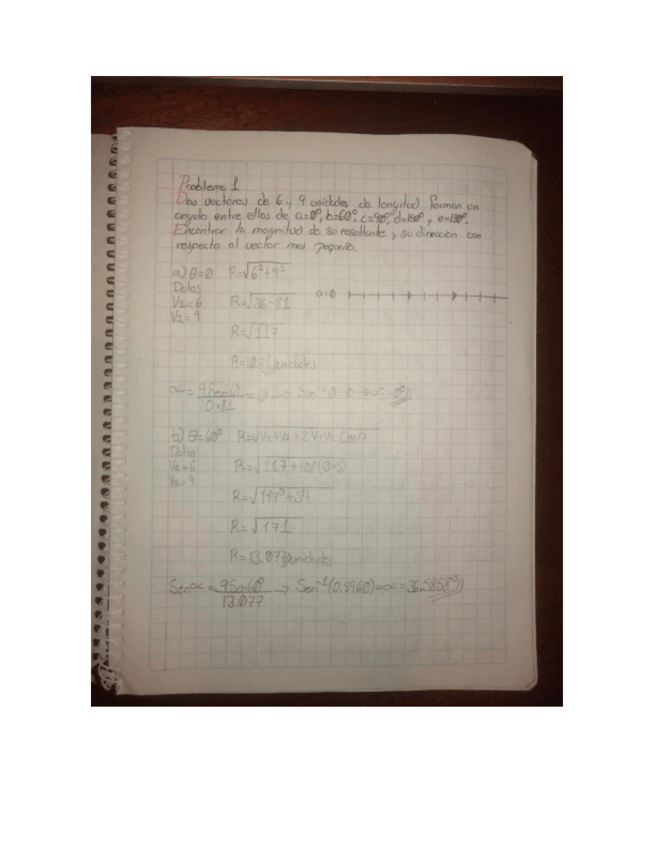 Problema 1
Dos vectores de 6 y 9 unidades de longitud forman un
angulo entre ellos de a=0°, b=60°, c=90°, d=150° y e=180°.
Encontrar la magnitud de su resultante y su direccion con
respecto al vector mas pequeño.
a) θ=0 R=√6²+9²
Datos
V1=6 R=√36+81
a=0
V2=9
R=√117
R=10.81 unidades
∝= 9 Sen 0 / 10.81 = 0 → Sen⁻¹ 0=0 → ∝=0°
b) θ=60° R=√V1+V2+2V1V2 Cos θ
Datos
V1=6 R=√117+108(0.5)
V2=9
R=√117+54
R=√171
R=13.077 unidades
Sen∝= 9Sen60° / 13.077 → Sen⁻¹(0.5960)=∝=36.5858°